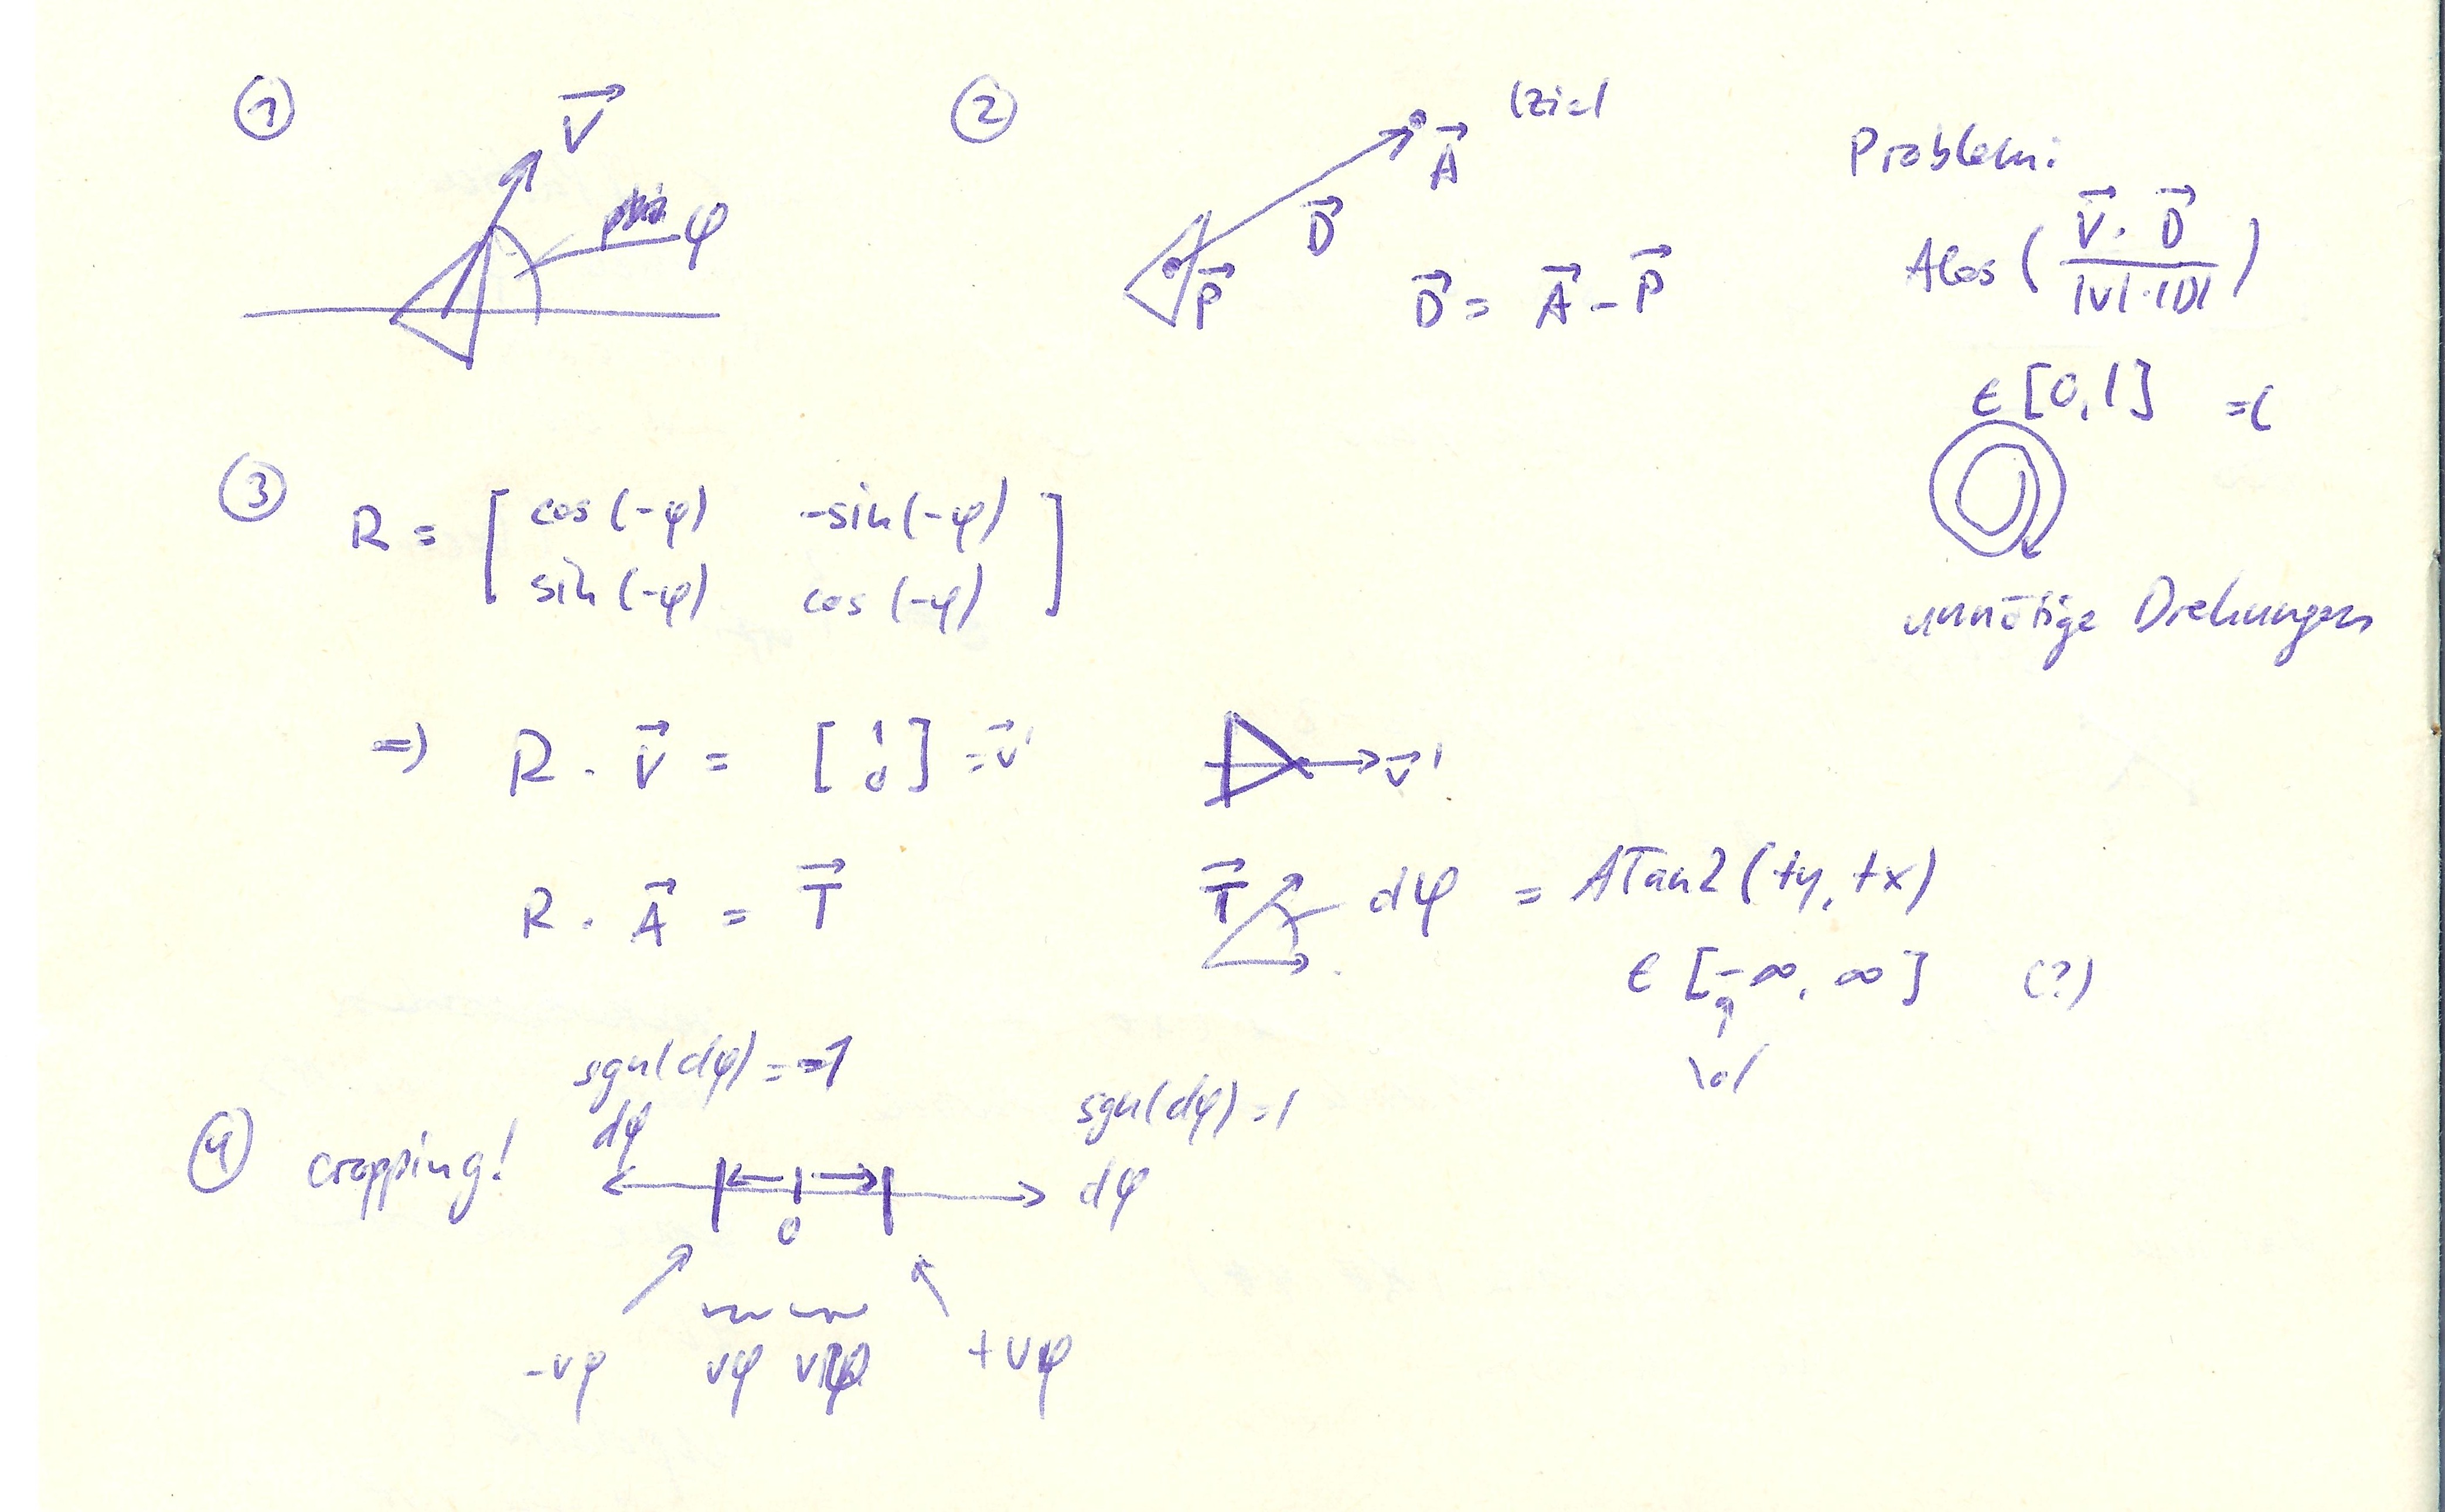 ①
V⃗
φ
②
(Ziel
A⃗
D⃗
P⃗
D⃗ = A⃗ - P⃗
Problem:
ACos ( V⃗ · D⃗ / |V| · |D| )
∈ [0,1] =(
unnötige Drehungen
③ R = [ cos(-φ) -sin(-φ)
sin(-φ) cos(-φ) ]
⇒ R · V⃗ = [ 1 0 ] = V⃗'
V⃗'
R · A⃗ = T⃗
T⃗ dφ = ATan2(ty, tx)
∈ [-∞, ∞] (?)
\o/
sgn(dφ) = -1
dφ
sgn(dφ) = 1
④ cropping!
dφ
0
-vφ vφ vφ +vφ